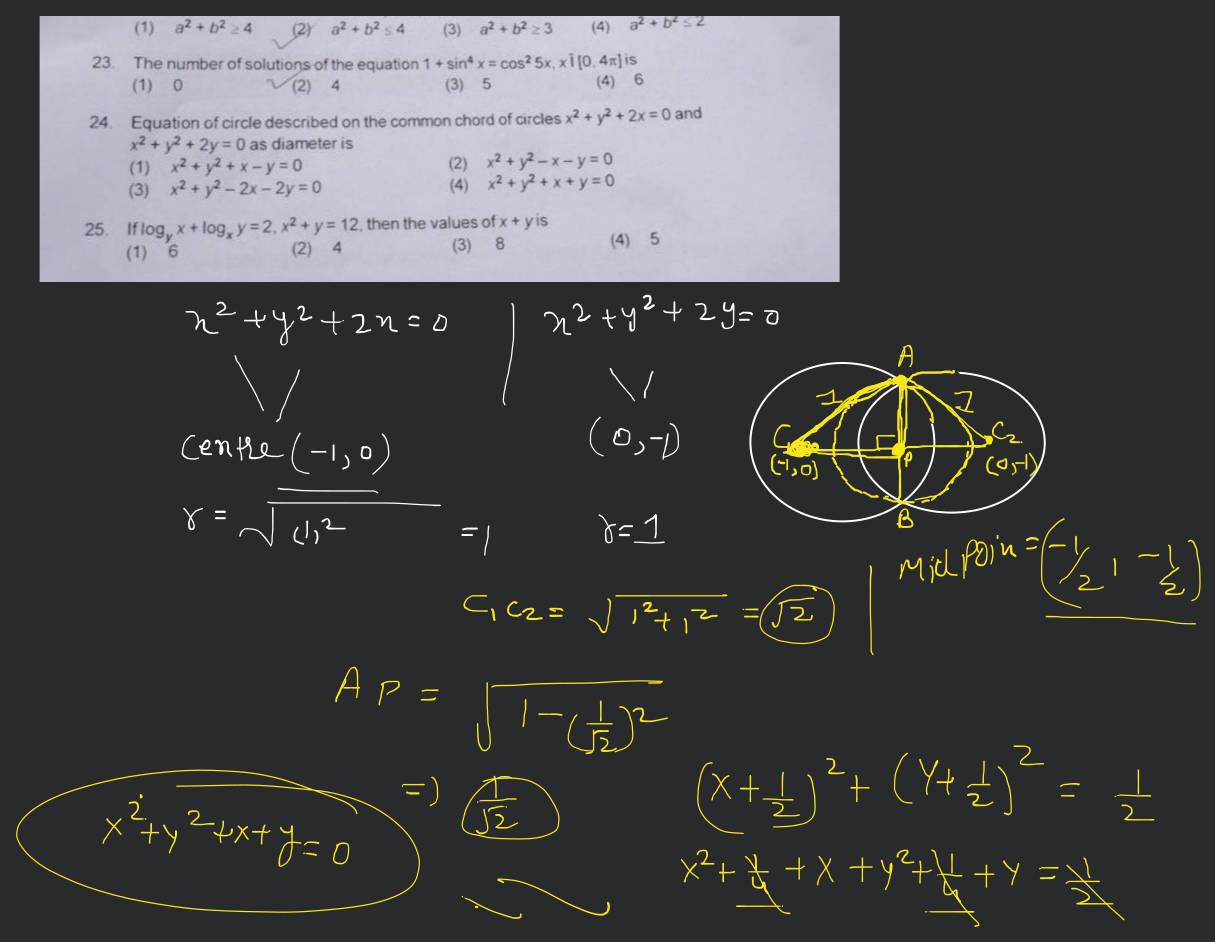 (1) a² + b² ≥ 4 (2) a² + b² ≤ 4 (3) a² + b² ≥ 3 (4) a² + b² ≤ 2
23. The number of solutions of the equation 1 + sin⁴ x = cos² 5x, x Î [0, 4π] is
(1) 0 (2) 4 (3) 5 (4) 6
24. Equation of circle described on the common chord of circles x² + y² + 2x = 0 and
x² + y² + 2y = 0 as diameter is
(1) x² + y² + x – y = 0 (2) x² + y² – x – y = 0
(3) x² + y² – 2x – 2y = 0 (4) x² + y² + x + y = 0
25. If log_y x + log_x y = 2, x² + y = 12, then the values of x + y is
(1) 6 (2) 4 (3) 8 (4) 5
x² + y² + 2x = 0 | x² + y² + 2y = 0
A
1 1
C₁ P C₂
(-1,0) (0,-1)
B
Centre (-1, 0) (0, -1)
r = √(1)² = 1 r = 1
Mid poin = (-1/2, -1/2)
C₁C₂ = √1² + 1² = √2
AP = √1 - (1/√2)²
=) 1/√2
(x + 1/2)² + (y + 1/2)² = 1/2
x² + 1/4 + x + y² + 1/4 + y = 1/2
x² + y² + x + y = 0